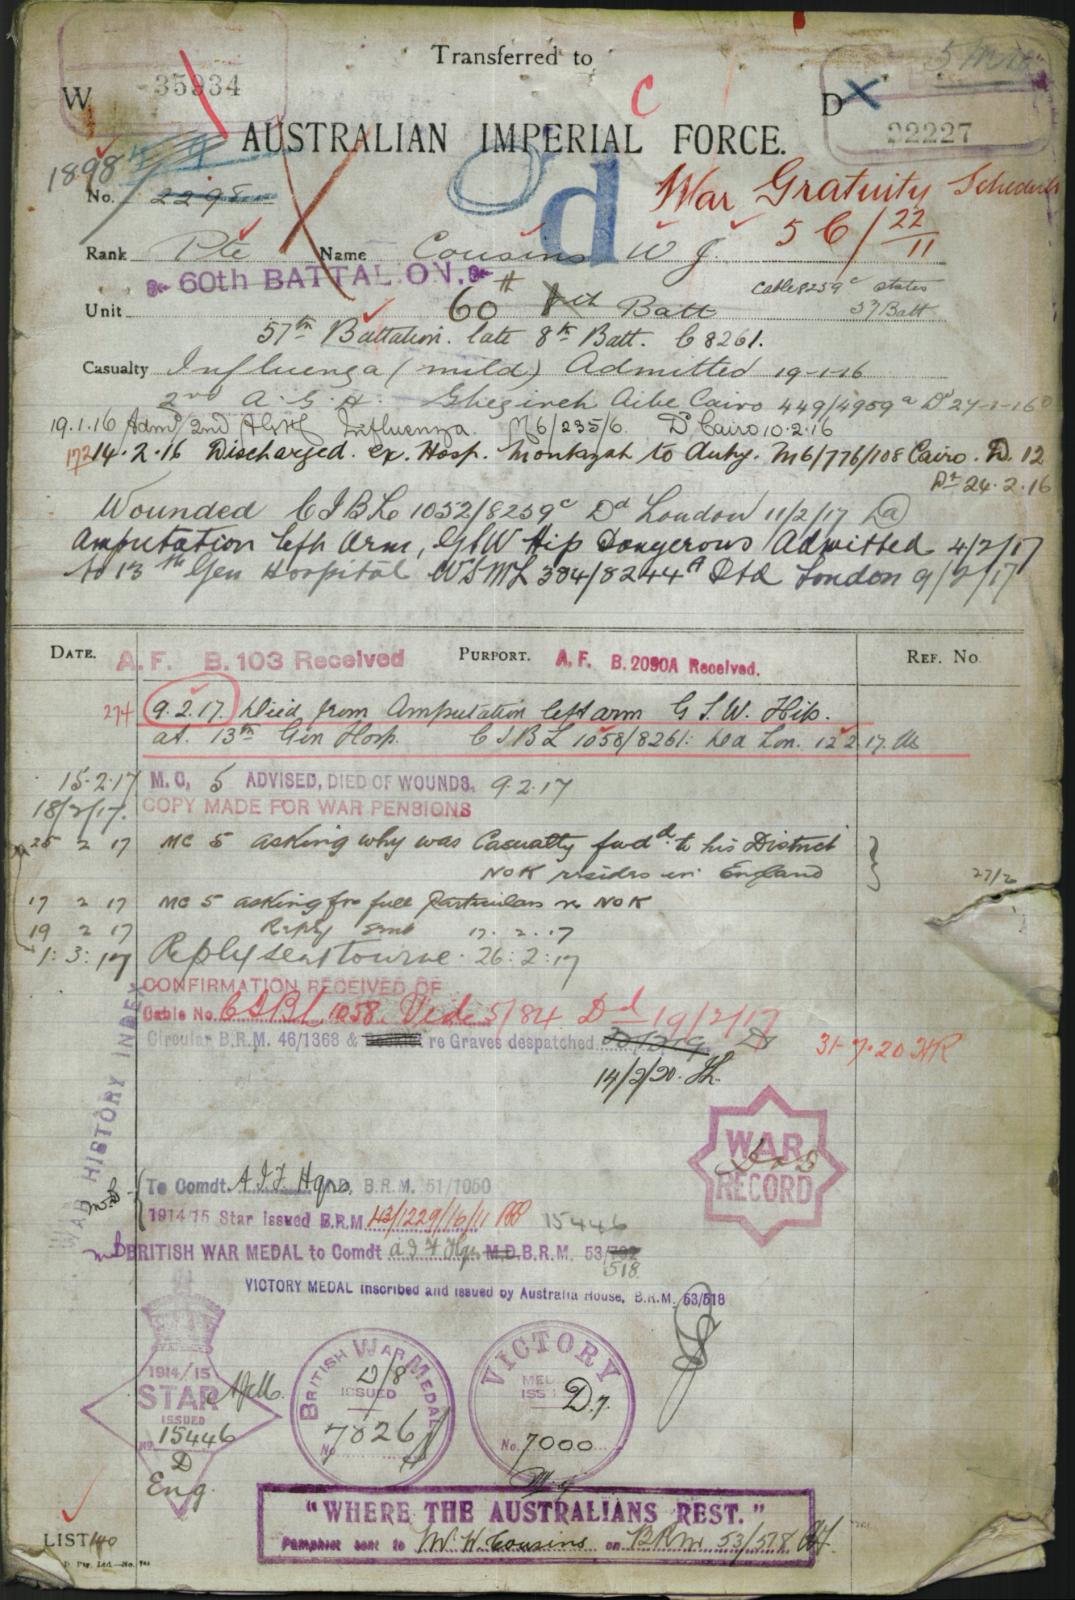 Transferred to
W 35934
C
D X
22227
AUSTRALIAN IMPERIAL FORCE.
d
War Gratuity Schedule
5 C/22/11
1898
No. 2298
Rank Pte Name Cousins W J.
60th BATTALION.
60th 8th Batt
Cable 8259c states
57 Batt
Unit
57th Battalion. late 8th Batt. C 8261.
Casualty Influenza (mild) Admitted 19-1-16
2nd A. G. H. Ghezireh Cairo 449/4959a Dd 27-1-16
19.1.16 Admd 2nd AGH Influenza. M6/235/6. Dd Cairo 10.2.16
14.2.16 Discharged. ex. Hosp. Montazah to duty. M6/776/108 Cairo. D. 12
Dd 24.2.16
Wounded C I B L 1052/8259c Dd London 11/2/17
Amputation left Arm, GSW Hip Dangerous Admitted 4/2/17
to 13th Gen Hospital WSML 384/8244A Dtd London 9/2/17
DATE. A. F. B. 103 Received PURPORT. A. F. B. 2090A Received. REF. No
274 9.2.17. Died from Amputation left arm G.S.W. Hip.
at. 13th Gen Hosp. C I B L 1058/8261: Dd Lon. 12 2.17.
15.2.17 M. C, 5 ADVISED, DIED OF WOUNDS, 9.2.17
18/2/17. COPY MADE FOR WAR PENSIONS
25 2 17 MC 5 asking why was Casualty fwdd to his District
NOK resides in England
27/2
17 2 17 MC 5 asking for full particulars re NOK
19 2 17 Reply sent 17. 2. 17
1:3:17 Reply sent 26:2:17
CONFIRMATION RECEIVED OF
Cable No. CIBL 1058. Vide 5/84 Dd 19/2/17
Circular B.R.M. 46/1363 & re Graves despatched
31-7-20 HR
14/2/20.
WAR HISTORY INDEX
WAR
RECORD
To Comdt. A.I.F. Hqrs, B.R.M. 51/1050
1914/15 Star Issued B.R.M 43/1229/16/11 15446
BRITISH WAR MEDAL to Comdt A I F Hqrs M.D. B.R.M. 53/
518
VICTORY MEDAL inscribed and issued by Australia House, B.R.M. 53/518
1914/15
STAR
ISSUED
No. 15446
D
Eng.
BRITISH WAR MEDAL
D/8
ISSUED
No 7026
VICTORY
MEDAL
ISSUED
D7.
No. 7000
"WHERE THE AUSTRALIANS REST."
Pamphlet sent to W. H. Cousins on BRM 53/578
LIST 140